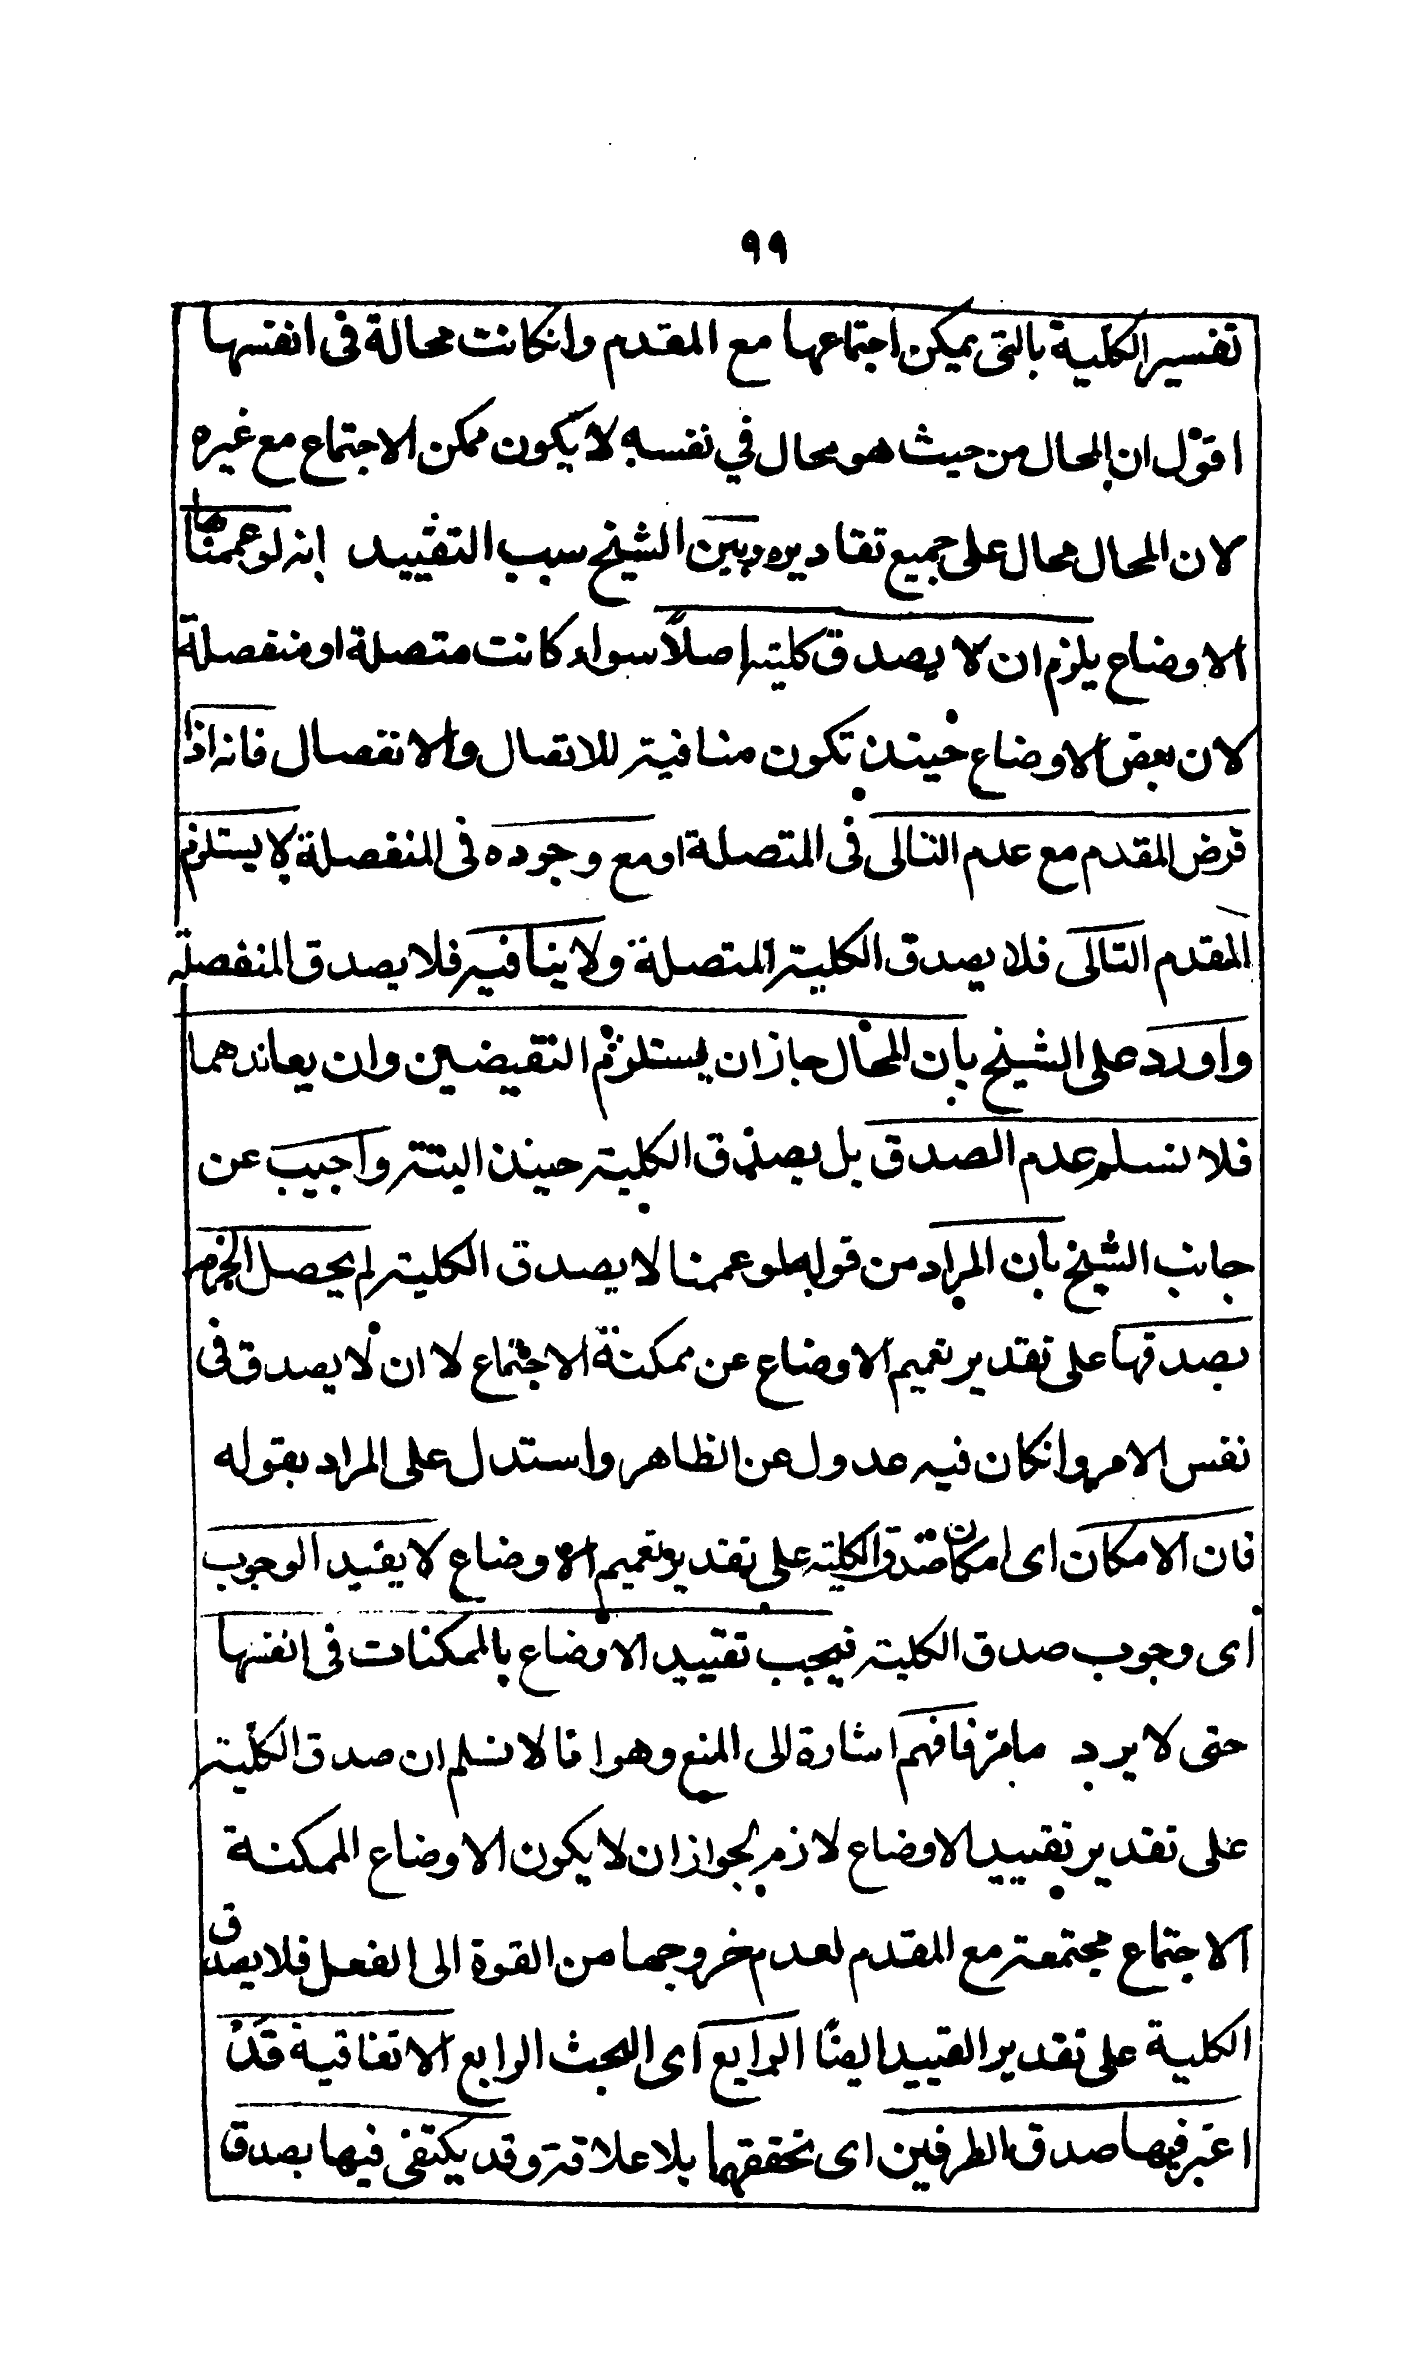 ٩٩
تفسير الكلية بالتى يمكن اجتماعها مع المقدم وانكانت محالة فى انفسها
اقول ان المحال من حيث هو محال في نفسه لا يكون ممكن الاجتماع مع غيره
لان المحال محال على جميع تقاديره وبين الشيخ سبب التقييد انه لو عممنا
الاوضاع يلزم ان لا يصدق كلية اصلاً سواء كانت متصلة او منفصلة
لان بعض الاوضاع حينئذ تكون منافية للاتصال والانفصال فانه اذا
فرض المقدم مع عدم التالى فى المتصلة او مع وجوده فى المنفصلة لا يستلزم
المقدم التالى فلا يصدق الكلية المتصلة ولا ينافيه فلا يصدق المنفصلة
واورد على الشيخ بان المحال جاز ان يستلزم النقيضين وان يعاندهما
فلا نسلم عدم الصدق بل يصدق الكلية حينئذ البتة واجيب عن
جانب الشيخ بان المراد من قوله لو عممنا لا يصدق الكلية لم يحصل الجزم
بصدقها على تقدير تعميم الاوضاع عن ممكنة الاجتماع لا ان لا يصدق فى
نفس الامر وانكان فيه عدول عن الظاهر واستدل على المراد بقوله
فان الامكان اى امكان صدق الكلية على تقدير تعميم الاوضاع لا يفيد الوجوب
اى وجوب صدق الكلية فيجب تقييد الاوضاع بالممكنات فى انفسها
حتى لا يرد مامرّ فافهم اشارة الى المنع وهو انا لا نسلم ان صدق الكلية
على تقدير تقييد الاوضاع لازم لجواز ان لا يكون الاوضاع الممكنة
الاجتماع مجتمعة مع المقدم لعدم خروجها من القوة الى الفعل فلا يصدق
الكلية على تقدير التقييد ايضًا الرابع اى البحث الرابع الاتفاقية قد
اعتبر فيها صدق الطرفين اى تحققهما بلا علاقة وقد يكتفى فيها بصدق